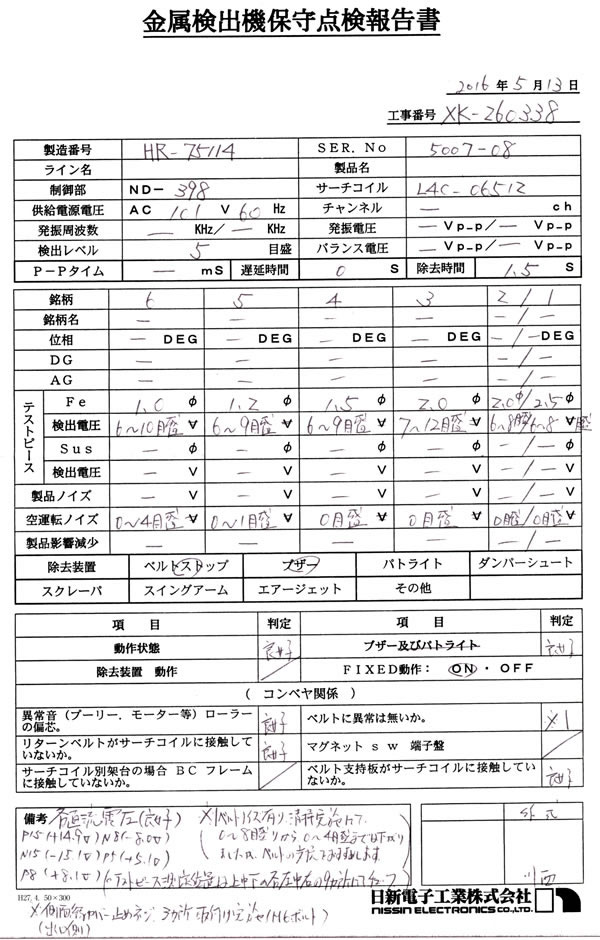 金属検出機保守点検報告書
2016 年 5 月 13 日
工事番号 XK-260338
製造番号 HR-75114 SER.No 5007-08
ライン名 製品名
制御部 ND-398 サーチコイル L4C-06512
供給電源電圧 AC 101 V 60 Hz チャンネル — ch
発振周波数 — KHz/— KHz 発振電圧 — Vp-p/— Vp-p
検出レベル 5 目盛 バランス電圧 — Vp-p/— Vp-p
P-Pタイム — mS 遅延時間 0 S 除去時間 1.5 S
銘柄 6 5 4 3 2/1
銘柄名 — — — — —/—
位相 — DEG — DEG — DEG — DEG —/—DEG
DG — — — — —/—
AG — — — — —/—
テストピース
Fe 1.0 φ 1.2 φ 1.5 φ 2.0 φ 2.0φ/2.5φ
検出電圧 6~10目盛 V 6~9目盛 V 6~9目盛 V 7~12目盛 V 6~8目盛/6~8目盛 V
Sus — φ — φ — φ — φ —/— φ
検出電圧 — V — V — V — V —/— V
製品ノイズ — V — V — V — V —/— V
空運転ノイズ 0~4目盛 V 0~1目盛 V 0目盛 V 0目盛 V 0目盛/0目盛 V
製品影響減少 — — — — —/—
除去装置 ベルトストップ ブザー パトライト ダンパーシュート
スクレーパ スイングアーム エアージェット その他
項目 判定 項目 判定
動作状態 良好 ブザー及びパトライト 良好
除去装置 動作 / FIXED動作: ON・OFF
( コンベヤ関係 )
異常音(プーリー.モーター等)ローラーの偏芯。 良好 ベルトに異常は無いか。 ※1
リターンベルトがサーチコイルに接触していないか。 良好 マグネットsw 端子盤 /
サーチコイル別架台の場合BCフレームに接触していないか。 / ベルト支持板がサーチコイルに接触していないか。 良好
備考 各直流電圧(良好) ※1ベルトノイズ有り 清掃実施にて
P15(+14.9V) N8(-8.0V) 0~8目盛りから0~4目盛まで下がり
N15(-15.1V) P5(+5.1V) ました。
P8(+8.1V)
日新電子工業株式会社
NISSIN ELECTRONICS CO.,LTD.
H27.4. 50×300